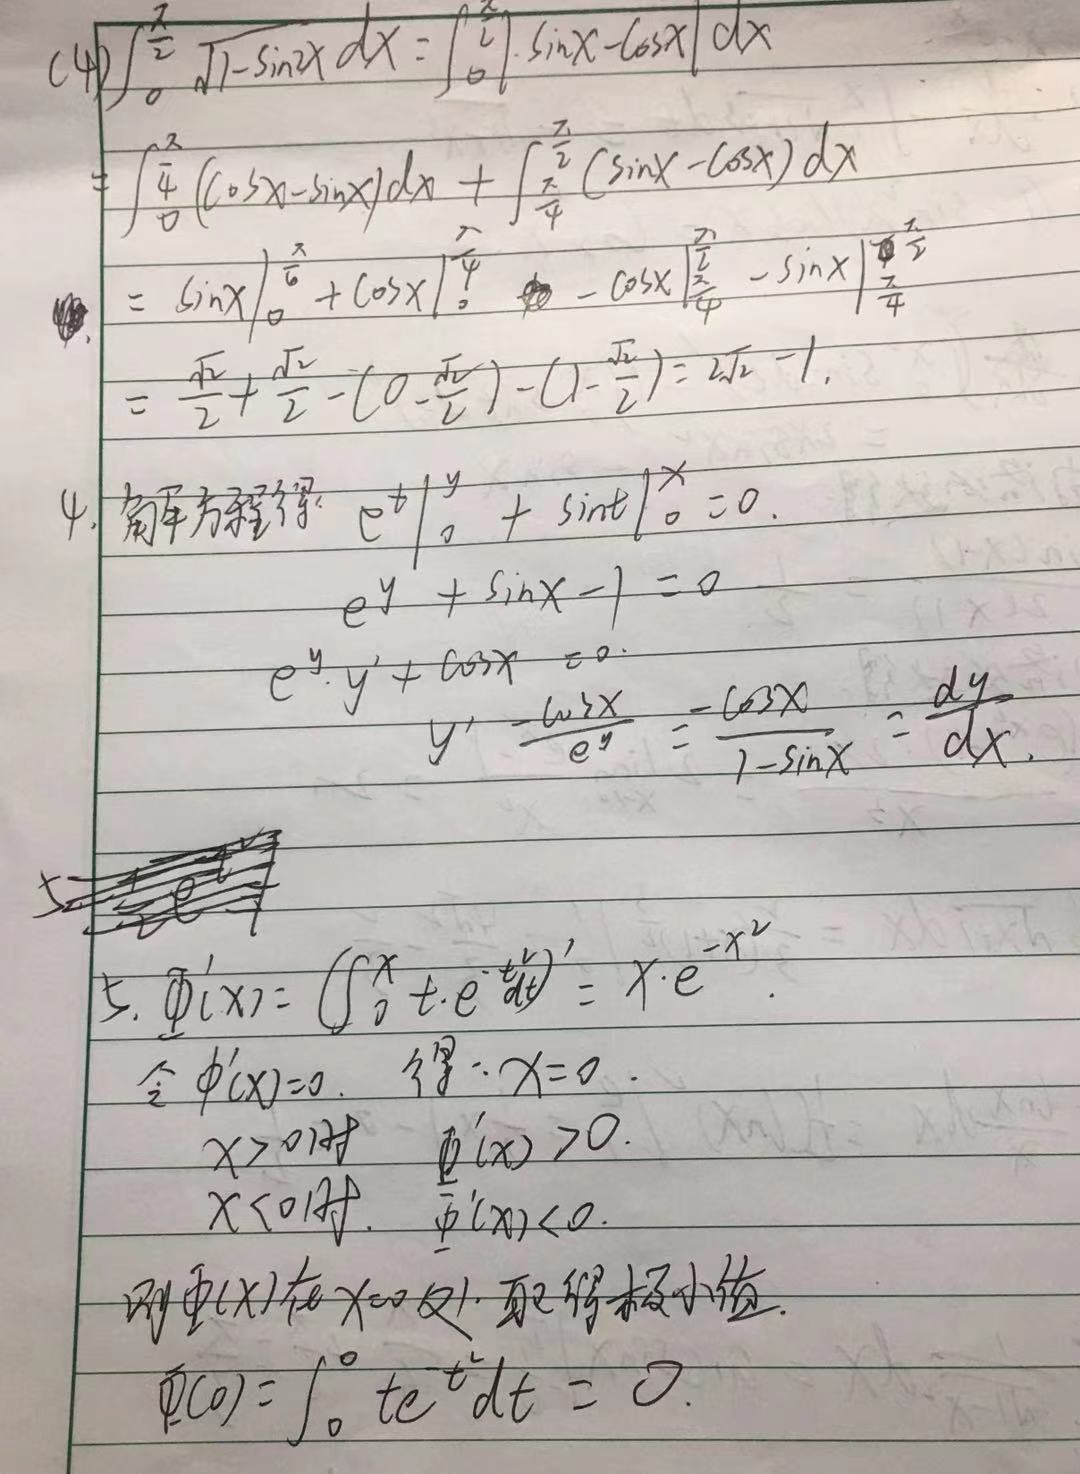 (4) ∫₀^{π/2} √(1-sin2x) dx = ∫₀^{π/2} |sinx-cosx| dx
= ∫₀^{π/4} (cosx-sinx)dx + ∫_{π/4}^{π/2} (sinx-cosx)dx
= sinx|₀^{π/6} + cosx|₀^{π/4} - cosx|_{π/4}^{π/2} - sinx|_{π/4}^{π/2}
= √2/2 + √2/2 - (0-√2/2) - (1-√2/2) = 2√2 -1.
4. 解方程得: e^t|₀^y + sint|₀^x = 0.
e^y + sinx - 1 = 0
e^y·y' + cosx = 0.
y' -cosx/e^y = -cosx/(1-sinx) = dy/dx.
5. Φ'(x) = (∫₀^x t·e^{-t²}dt)' = x·e^{-x²}.
令 Φ'(x)=0. 得: x=0.
x>0时 Φ'(x)>0.
x<0时. Φ'(x)<0.
则Φ(x)在x=0处. 取得极小值.
Φ(0) = ∫₀^0 te^{-t²}dt = 0.